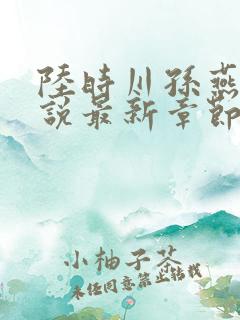 陸時川孫燕
說最新章節
小柚子茶
未经同意禁止转载